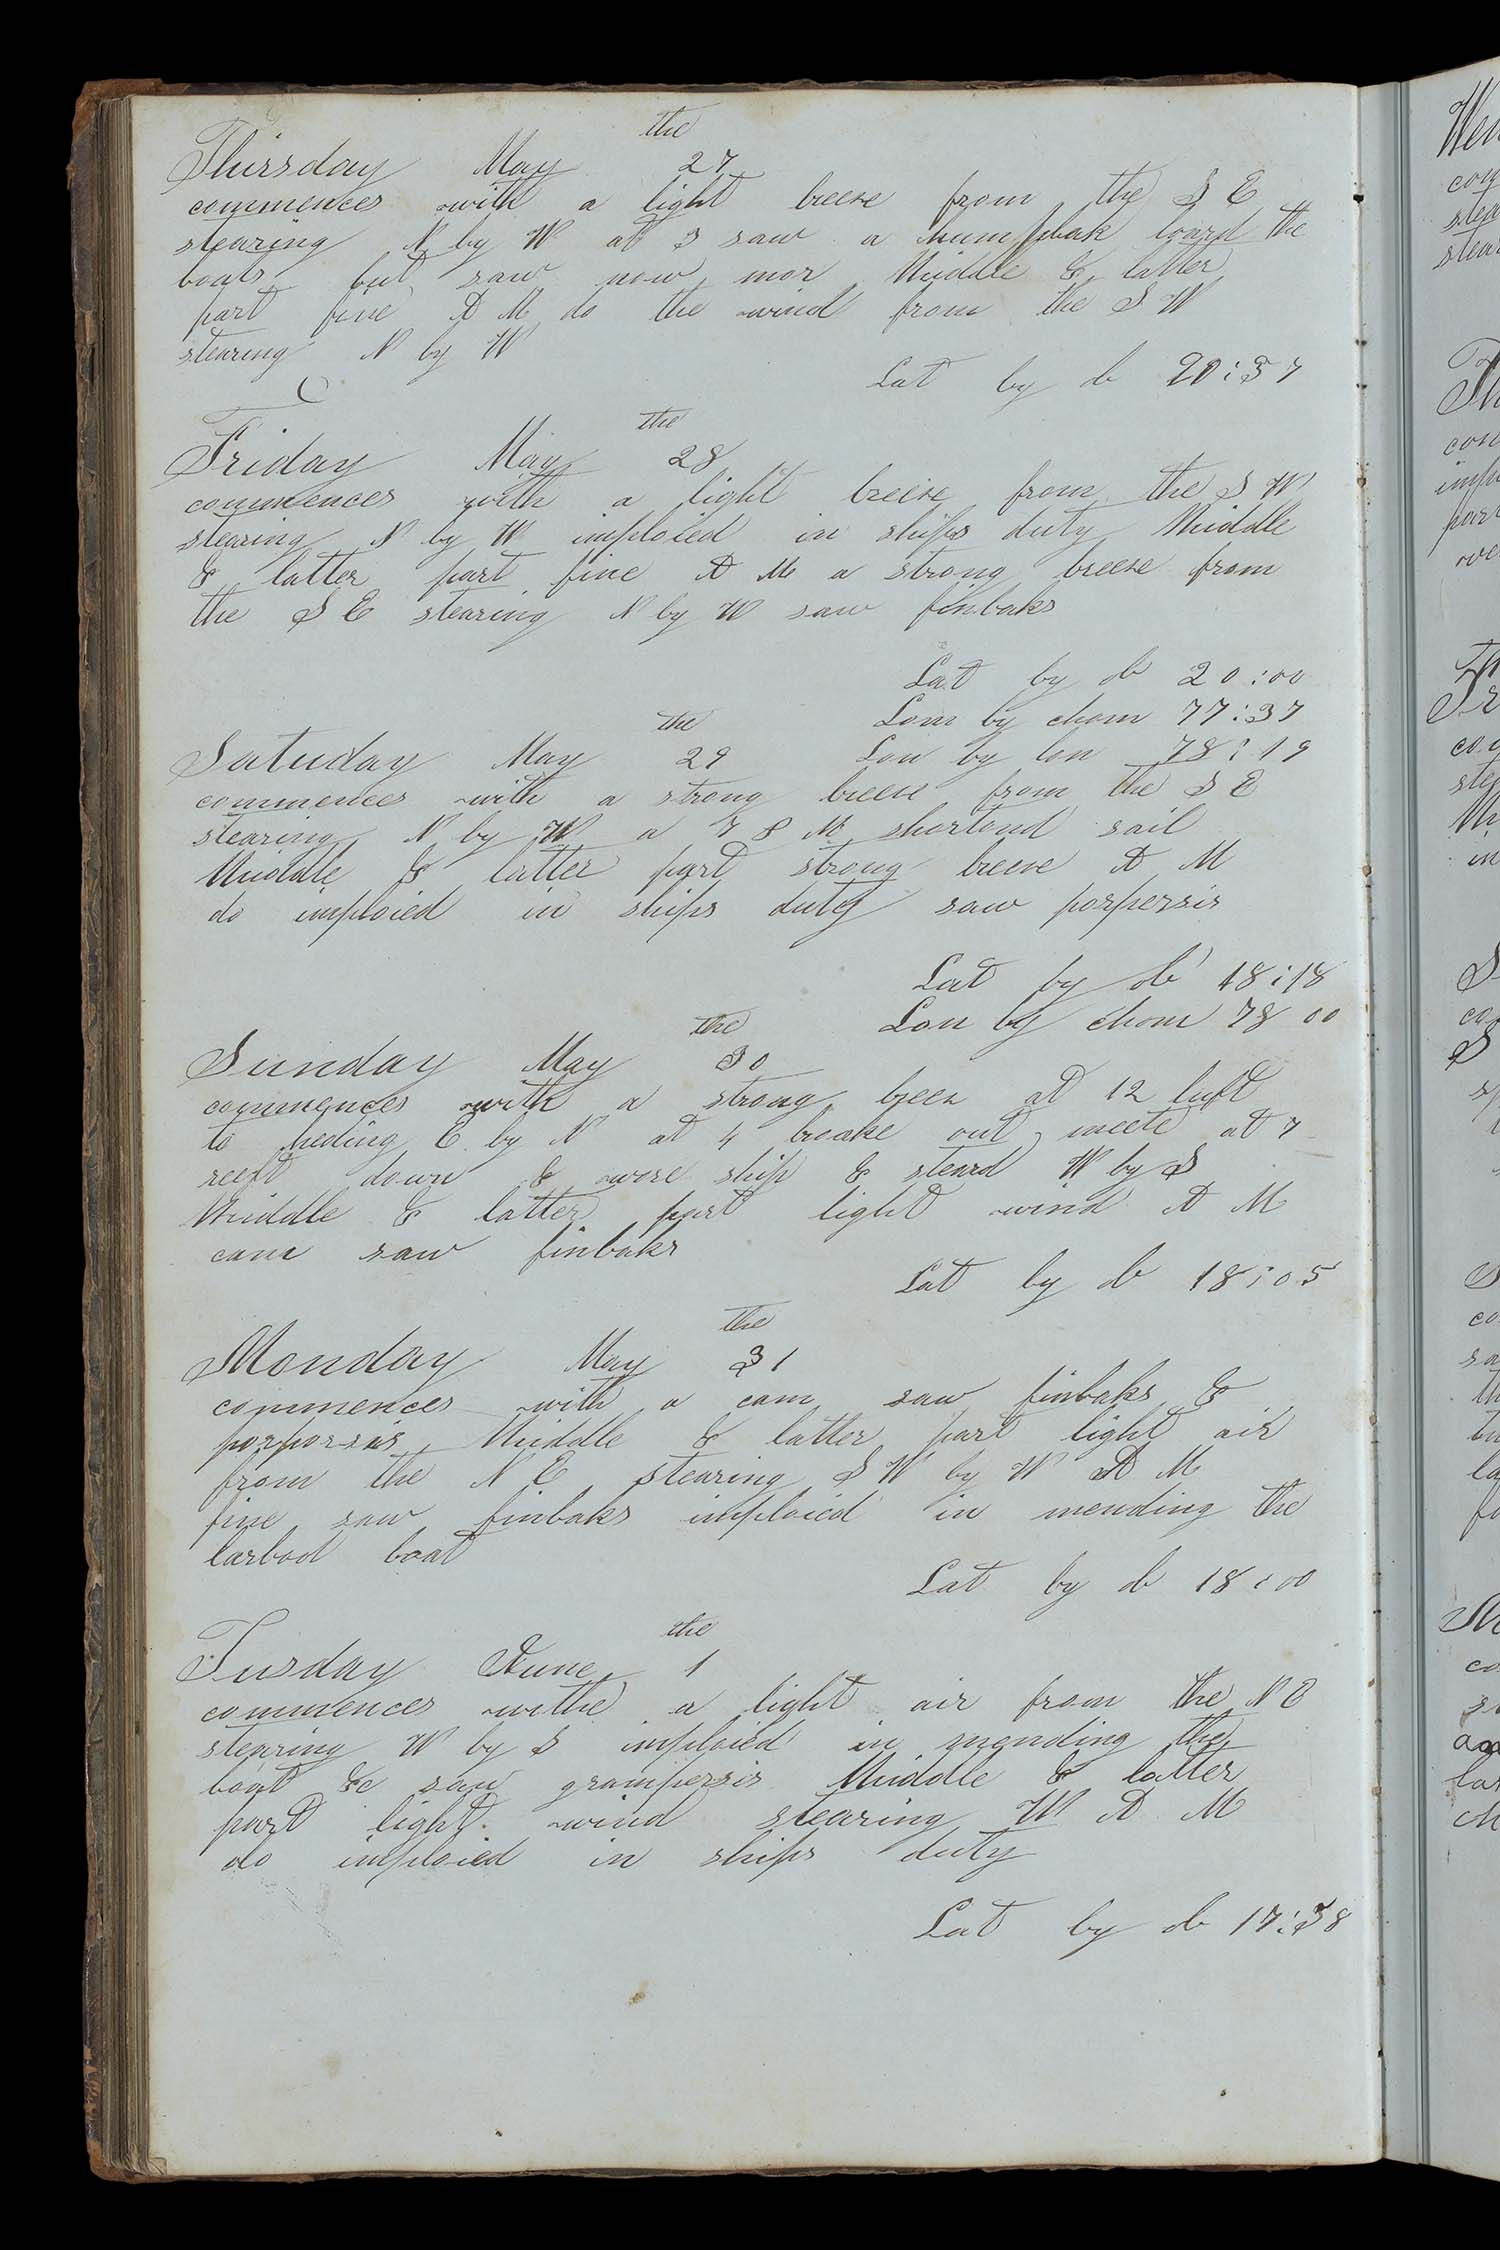 the
Thirsday May 27
commences with a light breese from the S E
stearing N by W at 3 saw a humpbak loard the
boats but saw now mor Middle & latter
part fine A M do the wind from the S W
stearing N by W
Lat by ob 20:57
the
Friday May 28
commences with a light breise from the S W
stearing N by W imploied in ships duty Middle
& latter part fine A M a strong breese from
the S E stearing N by W saw finbaks
Lat by ob 20:00
Lon by chom 77:37
the
Satuday May 29 Lon by lon 78:19
commences with a strong breese from the S E
stearing N by W a 7 P M shortond sail
Middle & latter part strong breese A M
do imploied in ships duty saw porpersis
Lat by ob 18:18
Lon by chom 78 00
the
Sunday May 30
commences with a strong breese at 12 luft
to heding E by N at 4 broake out meete at 7
reeft down & wore ship & steard W by S
Middle & latter part light wind A M
cam saw finbaks
Lat by ob 18:05
the
Monday May 31
commences with a cam saw finbaks &
porporsis Middle & latter part light air
from the N E stearing S W by W A M
fine saw finbaks imploied in mending the
larbod boat
Lat by ob 18:00
the
Tusday June 1
commences withe a light air from the N E
stearing W by S imploied in mending the
boat &c saw grampersis Middle & latter
part light wind stearing W A M
do imploied in ships duty
Lat by ob 17:58